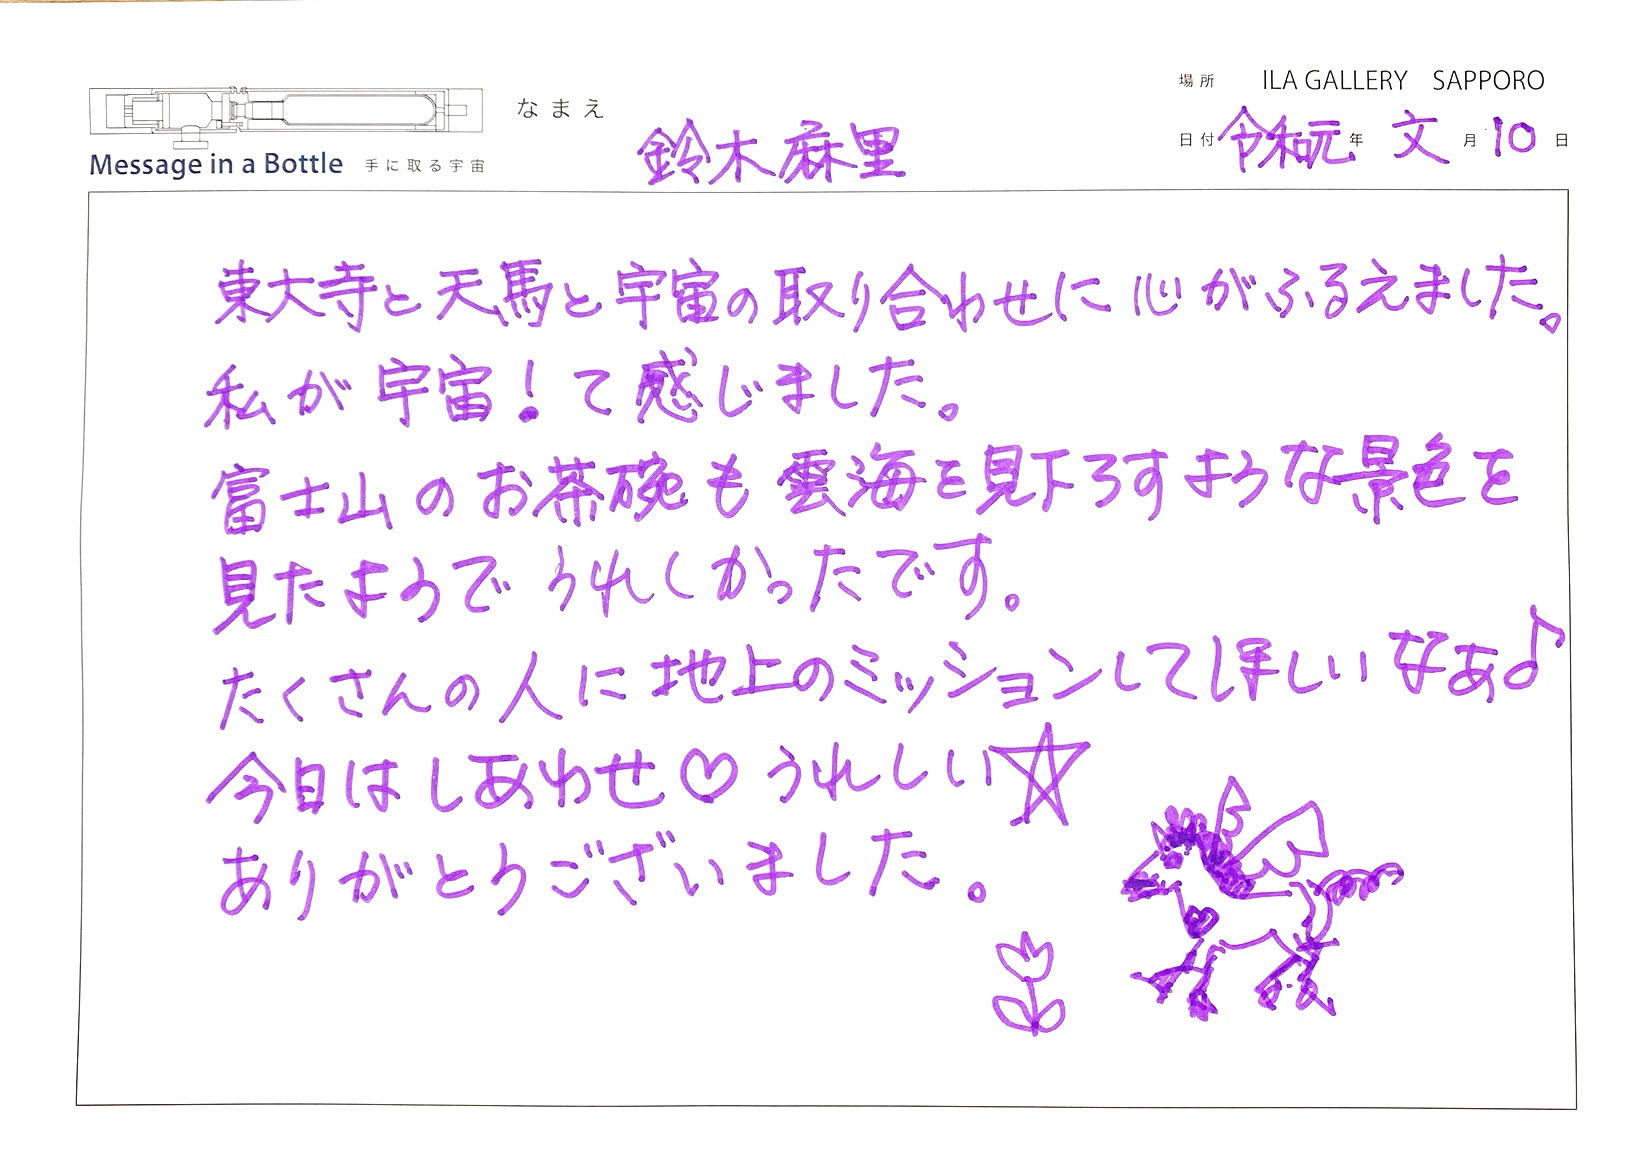 場所 ILA GALLERY SAPPORO
なまえ 鈴木麻里
日付 令和元年 文月10日
Message in a Bottle 手に取る宇宙
東大寺と天馬と宇宙の取り合わせに心がふるえました。
私が宇宙!て感じました。
富士山のお茶碗も雲海を見下ろすような景色を
見たようでうれしかったです。
たくさんの人に地上のミッションしてほしいなあ♪
今日はしあわせ♡うれしい☆
ありがとうございました。